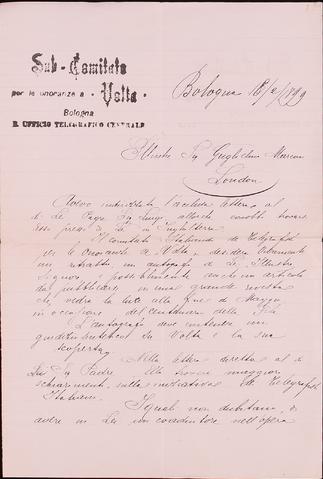 Sub-Comitato
per le onoranze a Volta
Bologna
R. UFFICIO TELEGRAFICO CENTRALE
Bologna 18/2/1899
Illustre Sig Guglielmo Marconi
London
Avevo l'acclusa lettera al
di Lei in Inghilterra
Il comitato Italiano di Telegrafisti
per le Onoranze a Volta, desidera
un autografo di Lei Illustre
Signore e possibilmente anche un articolo
da pubblicarsi in una grande rivista
che vedrà la luce alla fine di Maggio
in occasione del centenario della Pila
L'autografo deve contenere un
giudizio su Volta e la sua
scoperta
Nella lettera diretta al di
Lei Sig Padre Ella troverà maggiori
schiarimenti sulla iniziativa dei Telegrafisti
Italiani
I quali non dubitano di
avere in Lei un coadiutore nell'opera